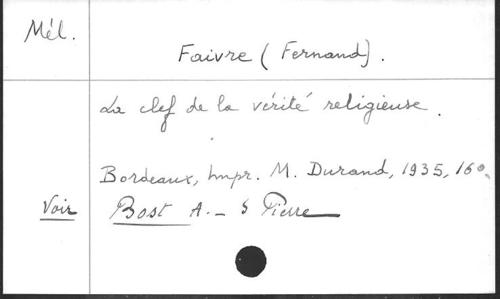 Mél.
Faivre (Fernand).
La clef de la vérité religieuse.
Bordeaux, Impr. M. Durand, 1935, 16º.
Voir Bost A. - S Pierre